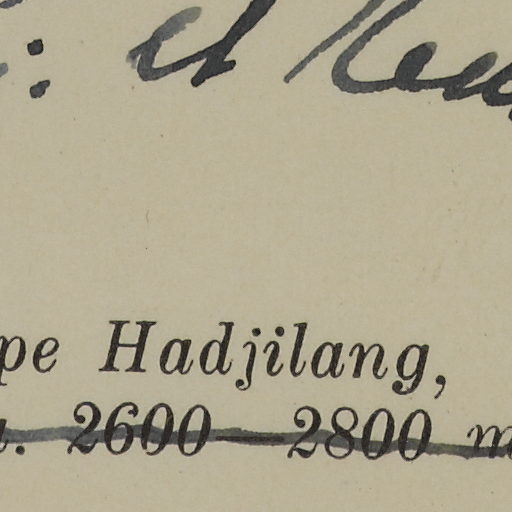 : et
pe Hadjilang,
. 2600—2800 m